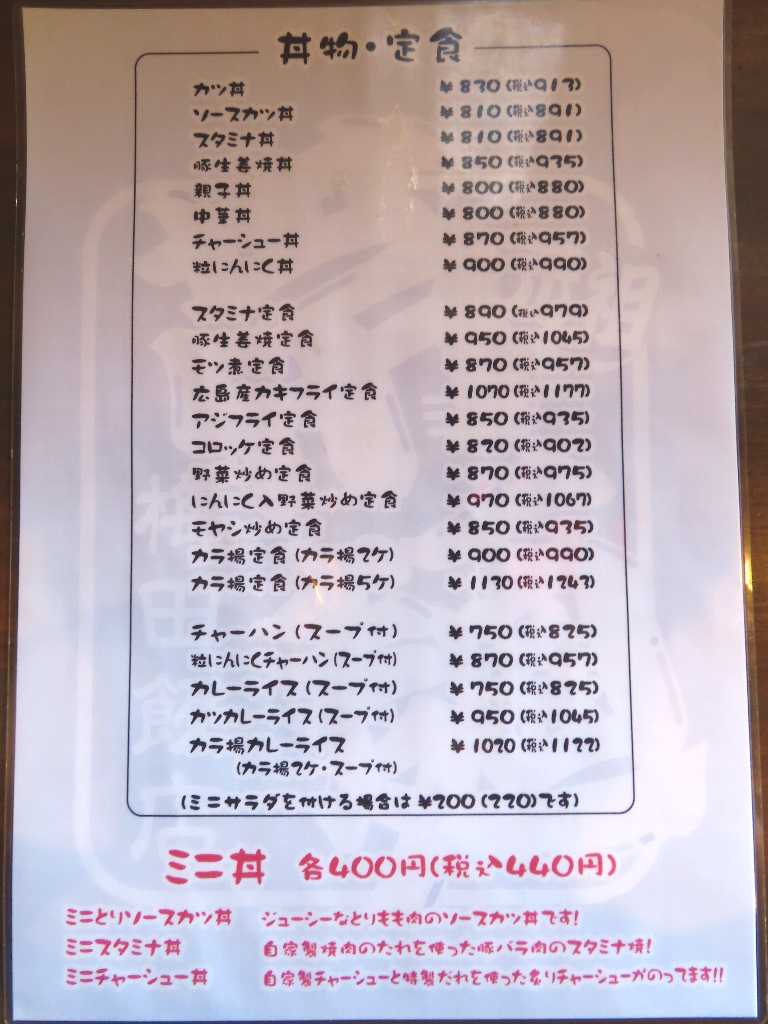 丼物・定食
カツ丼 ¥830(税込913)
ソースカツ丼 ¥810(税込891)
スタミナ丼 ¥810(税込891)
豚生姜焼丼 ¥850(税込935)
親子丼 ¥800(税込880)
中華丼 ¥800(税込880)
チャーシュー丼 ¥870(税込957)
粒にんにく丼 ¥900(税込990)
スタミナ定食 ¥890(税込979)
豚生姜焼定食 ¥950(税込1045)
モツ煮定食 ¥870(税込957)
広島産カキフライ定食 ¥1070(税込1177)
アジフライ定食 ¥850(税込935)
コロッケ定食 ¥820(税込902)
野菜炒め定食 ¥870(税込975)
にんにく入野菜炒め定食 ¥970(税込1067)
モヤシ炒め定食 ¥850(税込935)
カラ揚定食(カラ揚2ケ) ¥900(税込990)
カラ揚定食(カラ揚5ケ) ¥1130(税込1243)
チャーハン(スープ付) ¥750(税込825)
粒にんにくチャーハン(スープ付) ¥870(税込957)
カレーライス(スープ付) ¥750(税込825)
カツカレーライス(スープ付) ¥950(税込1045)
カラ揚カレーライス ¥1020(税込1122)
(カラ揚2ケ・スープ付)
(ミニサラダを付ける場合は¥200(220)です)
ミニ丼 各400円(税込440円)
ミニとりソースカツ丼 ジューシーなとりもも肉のソースカツ丼です!
ミニスタミナ丼 自家製焼肉のたれを使った豚バラ肉のスタミナ焼!
ミニチャーシュー丼 自家製チャーシューと特製だれを使った炙りチャーシューがのってます!!